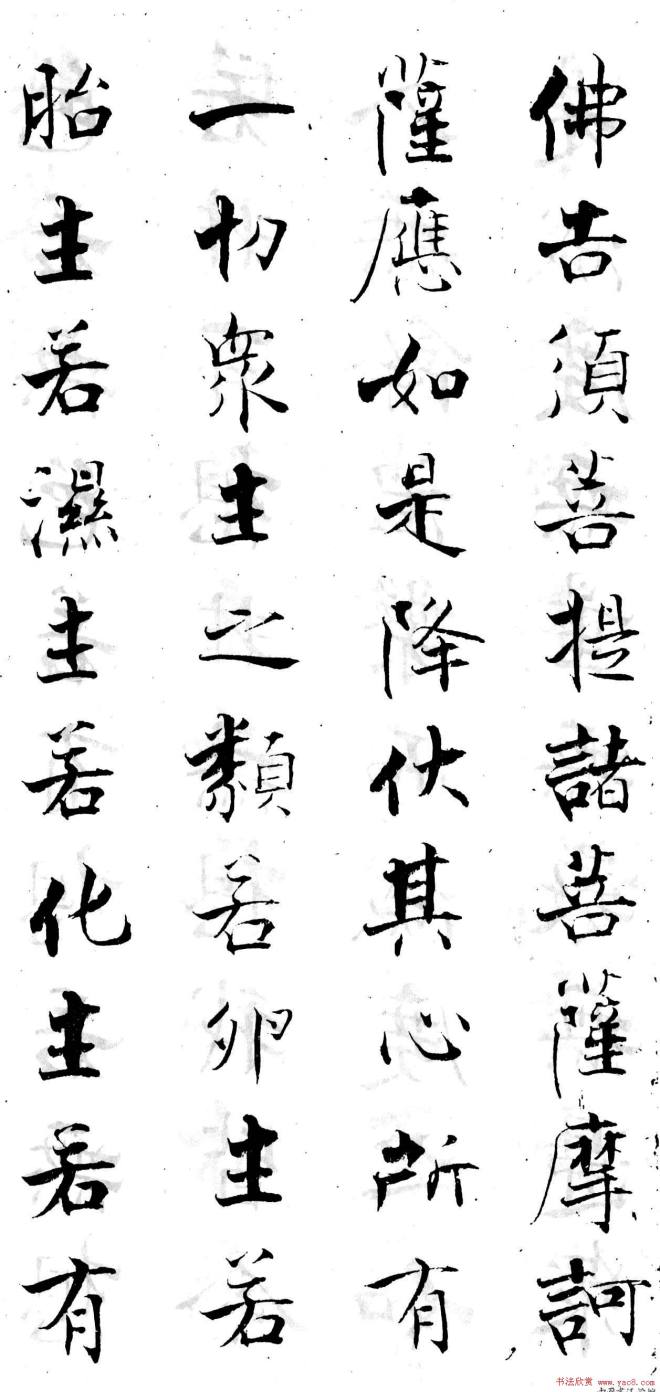 佛告須菩提諸菩薩摩訶
薩應如是降伏其心所有
一切眾生之類若卵生若
胎生若濕生若化生若有
书法欣赏
www.yac8.com